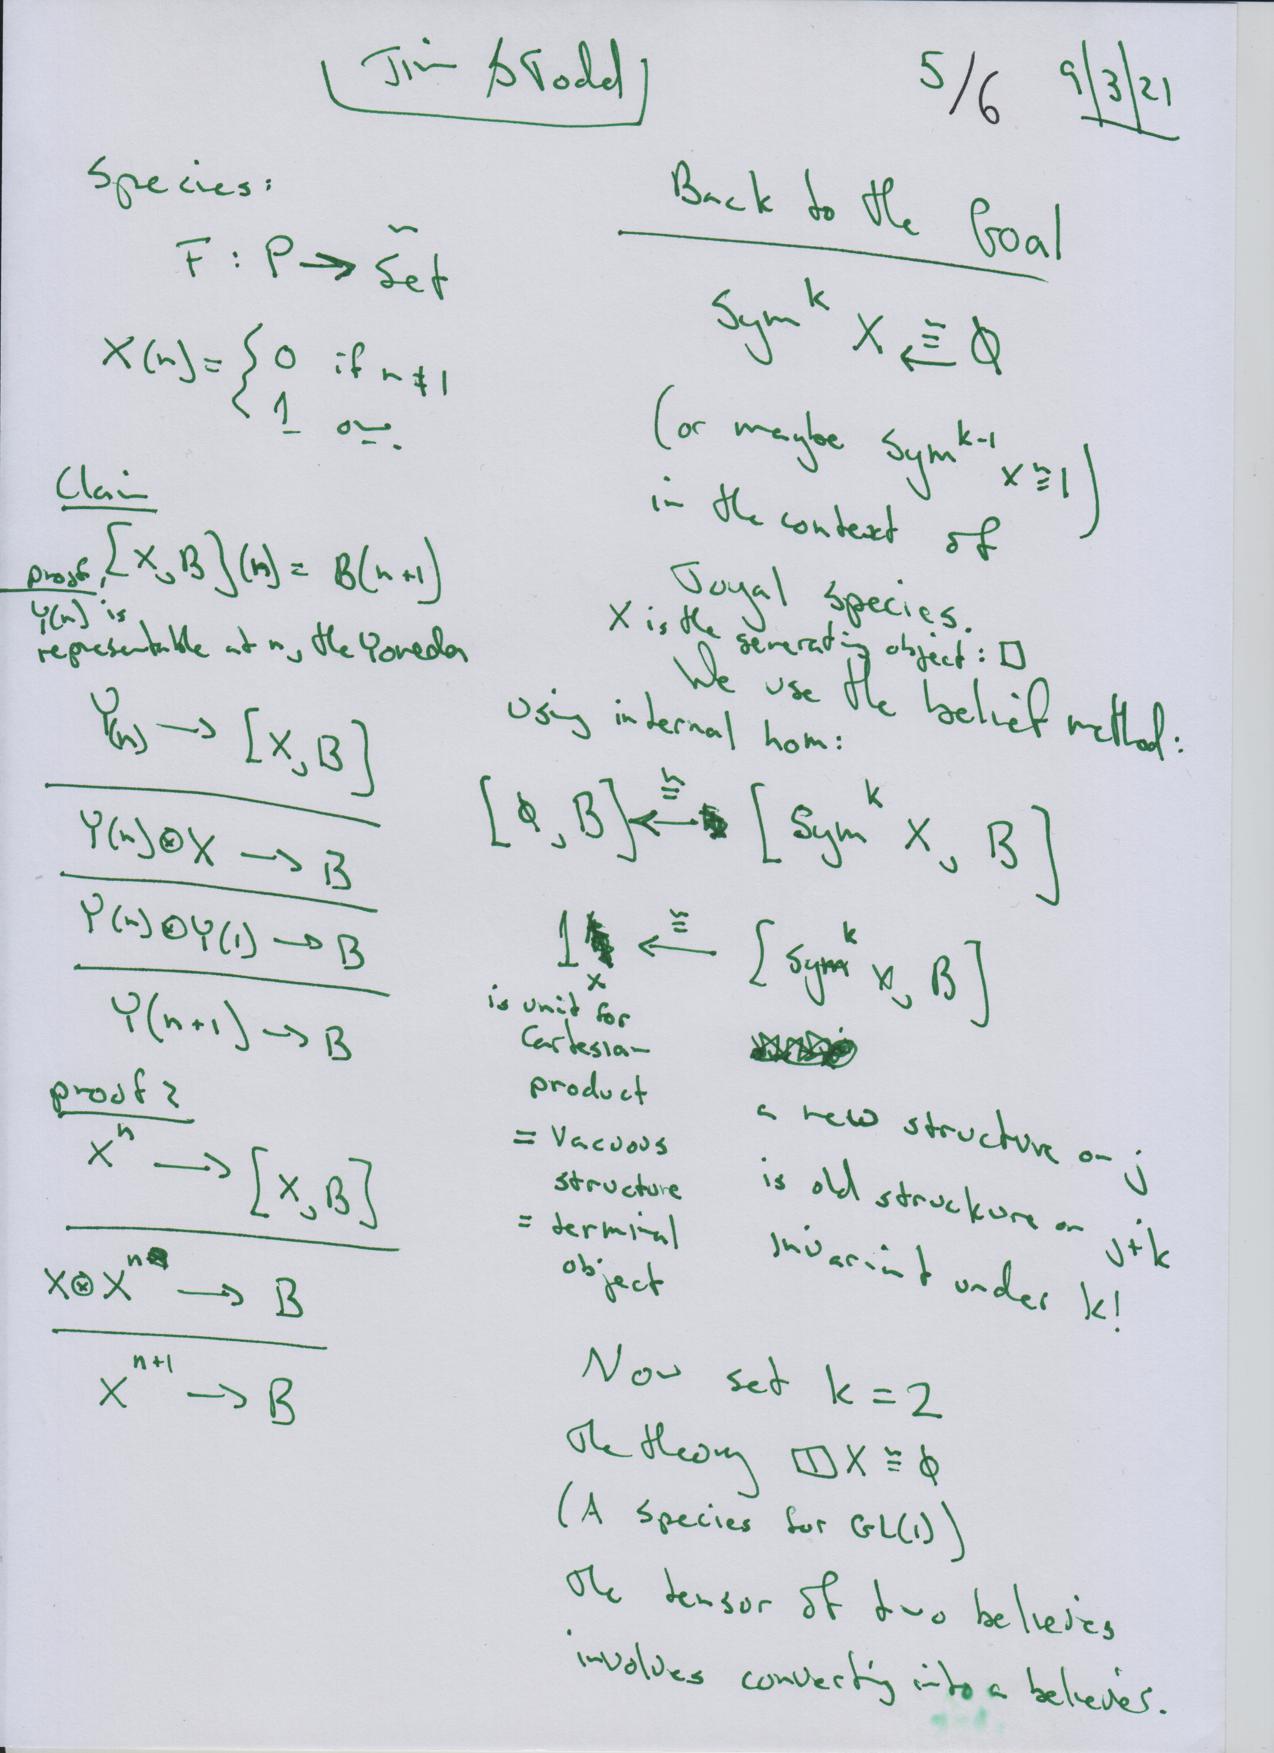 Jim & Todd
5/6 9/3/21
Species:
F : P → Set
X(n) = { 0 if n ≠ 1
1 ow.
Claim
[X, B](n) = B(n+1)
proof 1
Y(n) is
representable at n, the Yoneda
Y(n) → [X, B]
Y(n) ⊗ X → B
Y(n) ⊗ Y(1) → B
Y(n+1) → B
proof 2
X^n → [X, B]
X ⊗ X^n → B
X^{n+1} → B
Back to the Goal
Sym^k X ≅← 0
(or maybe Sym^{k-1} X ≅ 1)
in the context of
Joyal species.
X is the generating object: □
We use the belief method:
using internal hom:
[0, B] ←≅ [Sym^k X, B]
1 ←≅ [Sym^k X, B]
x
is unit for
Cartesian
product
= Vacuous
structure
= terminal
object
a new structure on j
is old structure on j+k
invariant under k!
Now set k = 2
the theory □□ X ≅ 0
(A species for GL(1))
the tensor of two believers
involves converting into a believer.